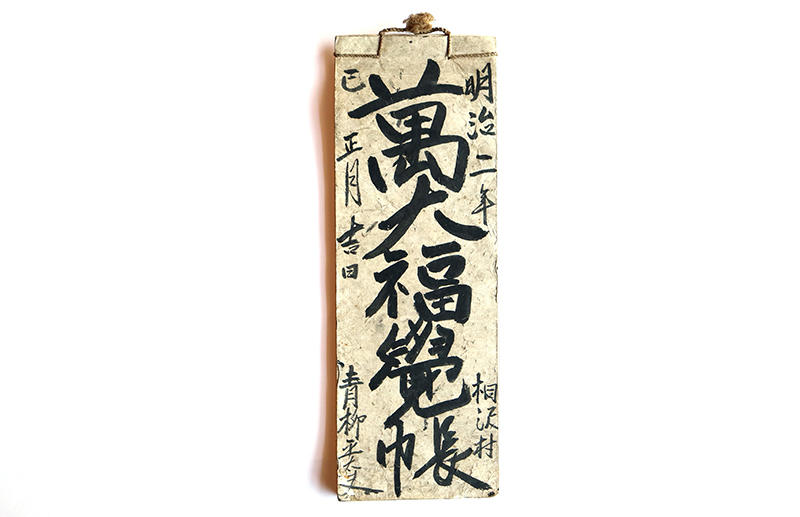 明治二年
桐沢村
萬大福覺帳
巳 正月 吉日
青柳